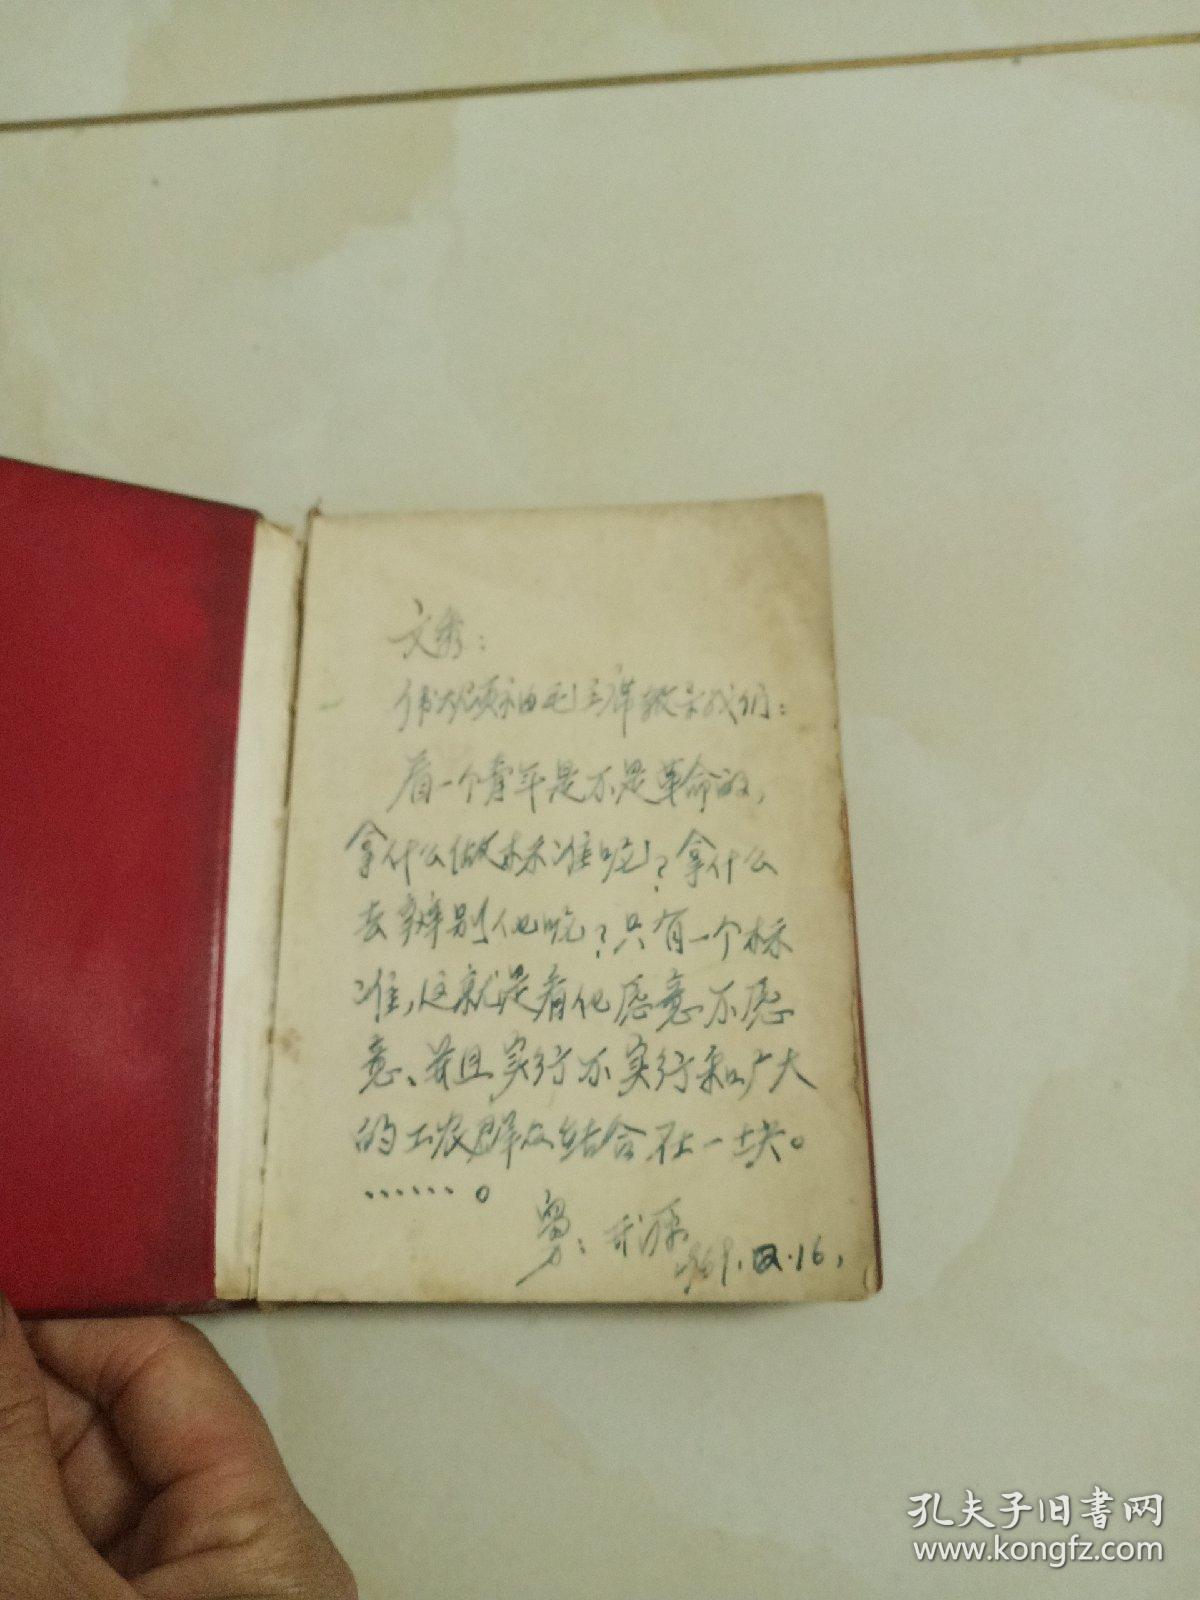 文秀：
伟大领袖毛主席教导我们：
看一个青年是不是革命的，
拿什么做标准呢？拿什么
去辨别他呢？只有一个标
准，这就是看他愿意不愿
意、并且实行不实行和广大
的工农群众结合在一块。
……。
1969.
.16.
孔夫子旧书网
www.kongfz.com